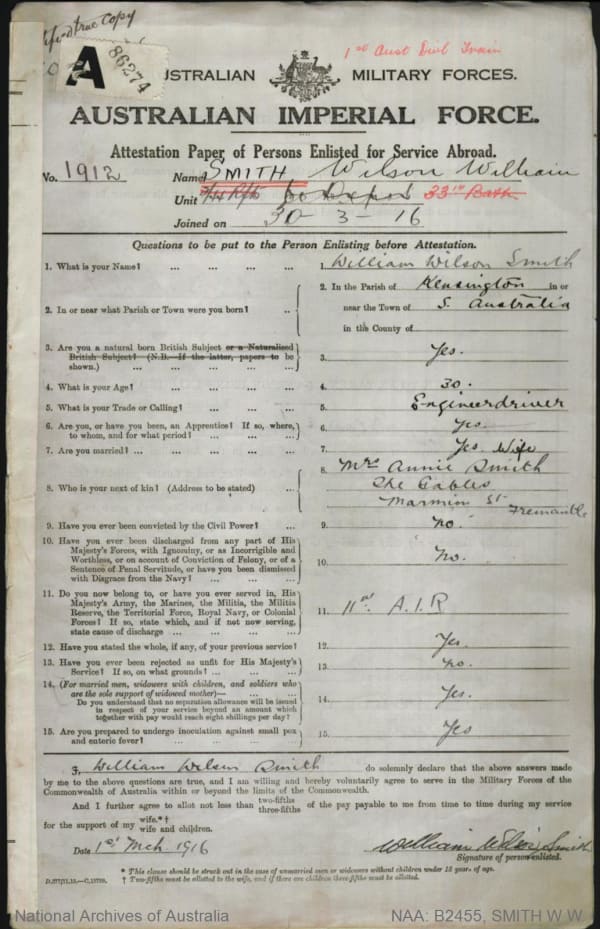 true Copy
A
86274
1st Aust Divl Train
AUSTRALIAN MILITARY FORCES.
AUSTRALIAN IMPERIAL FORCE.
Attestation Paper of Persons Enlisted for Service Abroad.
No. 1912 Name SMITH, Wilson William
Unit Depot 33rd Batn
Joined on 30-3-16
Questions to be put to the Person Enlisting before Attestation.
1. What is your Name? ... ... ... 1. William Wilson Smith
2. In or near what Parish or Town were you born? .. 2. In the Parish of Kensington in or
near the Town of S. Australia
in the County of
3. Are you a natural born British Subject or a Naturalized
British Subject? (N.B.—If the latter, papers to be
shown.) ... ... ... ... 3. Yes.
4. What is your Age? ... ... ... ... 4. 30.
5. What is your Trade or Calling? ... ... ... 5. Enginedriver
6. Are you, or have you been, an Apprentice? If so, where,
to whom, and for what period? ... ... ... 6. Yes
7. Are you married? ... ... ... ... 7. Yes. Wife
8. Who is your next of kin? (Address to be stated) ... 8. Mrs Annie Smith
The Gables
Marmion St Fremantle
9. Have you ever been convicted by the Civil Power? ... 9. no.
10. Have you ever been discharged from any part of His
Majesty's Forces, with Ignominy, or as Incorrigible and
Worthless, or on account of Conviction of Felony, or of a
Sentence of Penal Servitude, or have you been dismissed
with Disgrace from the Navy? ... ... ... 10. No.
11. Do you now belong to, or have you ever served in, His
Majesty's Army, the Marines, the Militia, the Militia
Reserve, the Territorial Force, Royal Navy, or Colonial
Forces? If so, state which, and if not now serving,
state cause of discharge ... ... ... ... 11. 11th. A.I.R
12. Have you stated the whole, if any, of your previous service? 12. Yes.
13. Have you ever been rejected as unfit for His Majesty's
Service? If so, on what grounds? ... ... ... 13. no.
14. (For married men, widowers with children, and soldiers who
are the sole support of widowed mother)— ... ...
Do you understand that no separation allowance will be issued
in respect of your service beyond an amount which
together with pay would reach eight shillings per day? 14. Yes.
15. Are you prepared to undergo inoculation against small pox
and enteric fever? ... ... ... ... 15. Yes
I, William Wilson Smith do solemnly declare that the above answers made
by me to the above questions are true, and I am willing and hereby voluntarily agree to serve in the Military Forces of the
Commonwealth of Australia within or beyond the limits of the Commonwealth.
And I further agree to allot not less than two-fifths three-fifths of the pay payable to me from time to time during my service
for the support of my wife.*† wife and children.
Date 1st Mch 1916 William Wilson Smith
Signature of person enlisted.
* This clause should be struck out in the case of unmarried men or widowers without children under 18 years of age.
† Two-fifths must be allotted to the wife, and if there are children three-fifths must be allotted.
National Archives of Australia NAA: B2455, SMITH W W